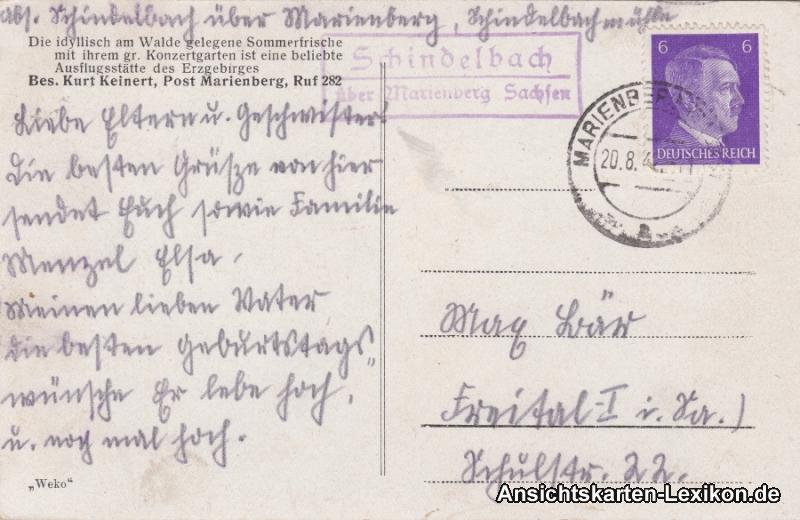 Abs. Schindelbach über Marienberg, Schindelbachmühle
Die idyllisch am Walde gelegene Sommerfrische
mit ihrem gr. Konzertgarten ist eine beliebte
Ausflugsstätte des Erzgebirges
Bes. Kurt Keinert, Post Marienberg, Ruf 282
Schindelbach
über Marienberg Sachsen
6 6
DEUTSCHES REICH
MARIENBERG
20.8.
a
Liebe Eltern u. Geschwister
Die besten Grüsze von hier
sendet Euch sowie Familie
Menzel Elsa.
Meinen lieben Vater
die besten Geburtstags-
wünsche Er lebe hoch,
u. noch mal hoch.
Max Bär
Freital-I i. Sa.)
Schulstr. 22.
„Weko"
Ansichtskarten-Lexikon.de